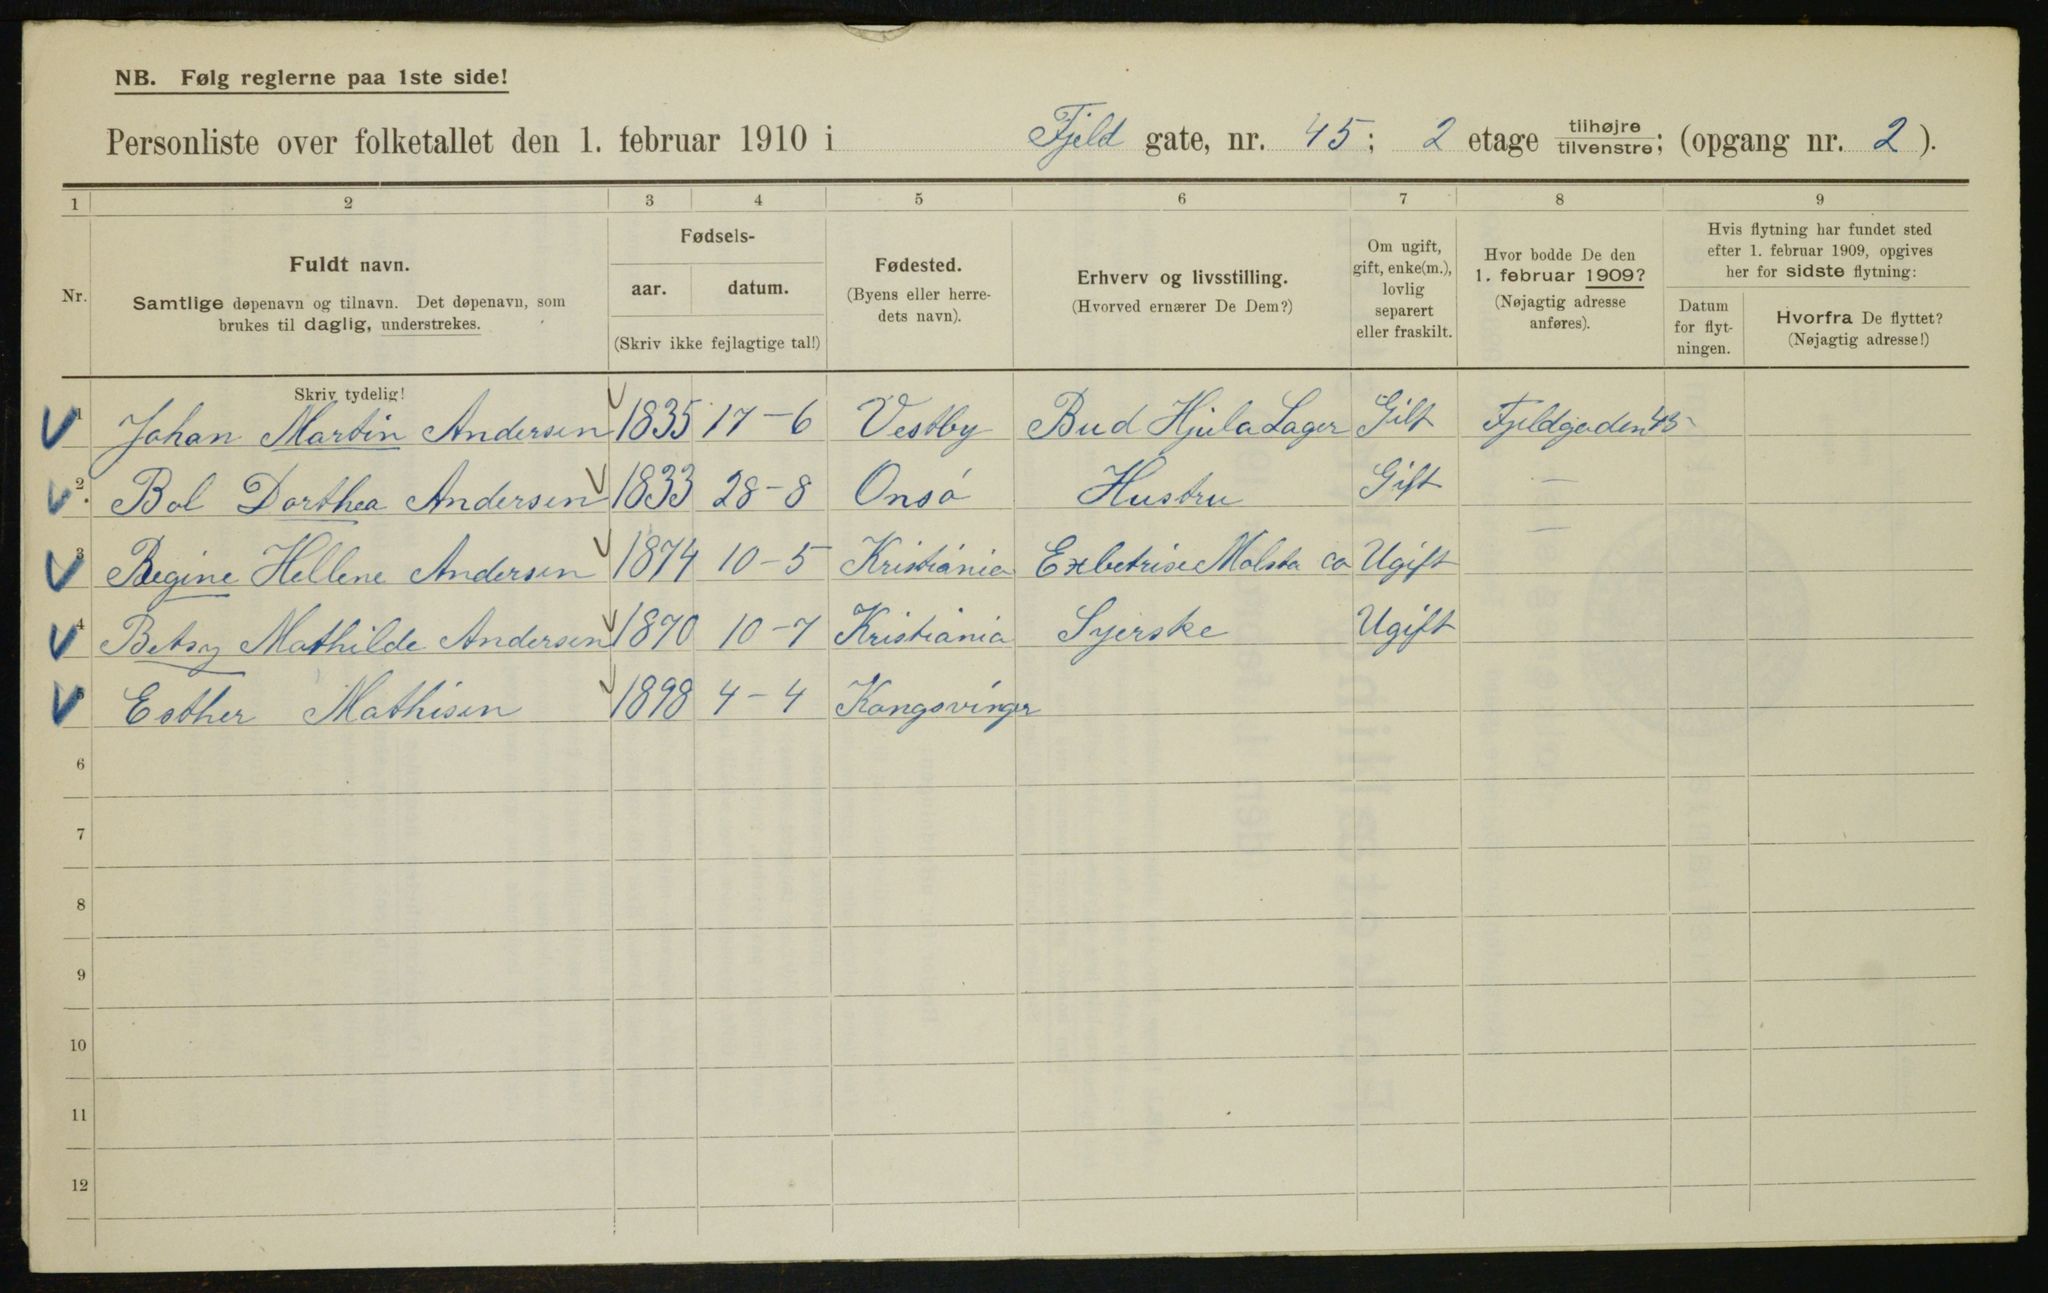 NB. Følg reglerne paa 1ste side!
Personliste over folketallet den 1. februar 1910 i Fjeld gate, nr. 45; 2 etage tilhøjre tilvenstre; (opgang nr. 2).
1 2 3 4 5 6 7 8 9
Nr.
Fuldt navn.
Samtlige døpenavn og tilnavn. Det døpenavn, som
brukes til daglig, understrekes.
Fødsels-
aar. datum.
(Skriv ikke fejlagtige tal!)
Fødested.
(Byens eller herre-
dets navn).
Erhverv og livsstilling.
(Hvorved ernærer De Dem?)
Om ugift,
gift, enke(m.),
lovlig
separert
eller fraskilt.
Hvor bodde De den
1. februar 1909?
(Nøjagtig adresse
anføres).
Hvis flytning har fundet sted
efter 1. februar 1909, opgives
her for sidste flytning:
Datum
for flyt-
ningen.
Hvorfra De flyttet?
(Nøjagtig adresse!)
Skriv tydelig!
1 Johan Martin Andersen 1835 17-6 Vestby Bud Hjula Lager Gift Fjeldgaden 45
2 Bol Dorthea Andersen 1833 28-8 Onsö Hustru Gift —
3 Regine Hellene Andersen 1874 10-5 Kristiania Exbetrise Molsta co Ugift —
4 Betsy Mathilde Andersen 1870 10-7 Kristiania Syerske Ugift
5 Esther Mathisen 1898 4-4 Kongsvinger
6
7
8
9
10
11
12